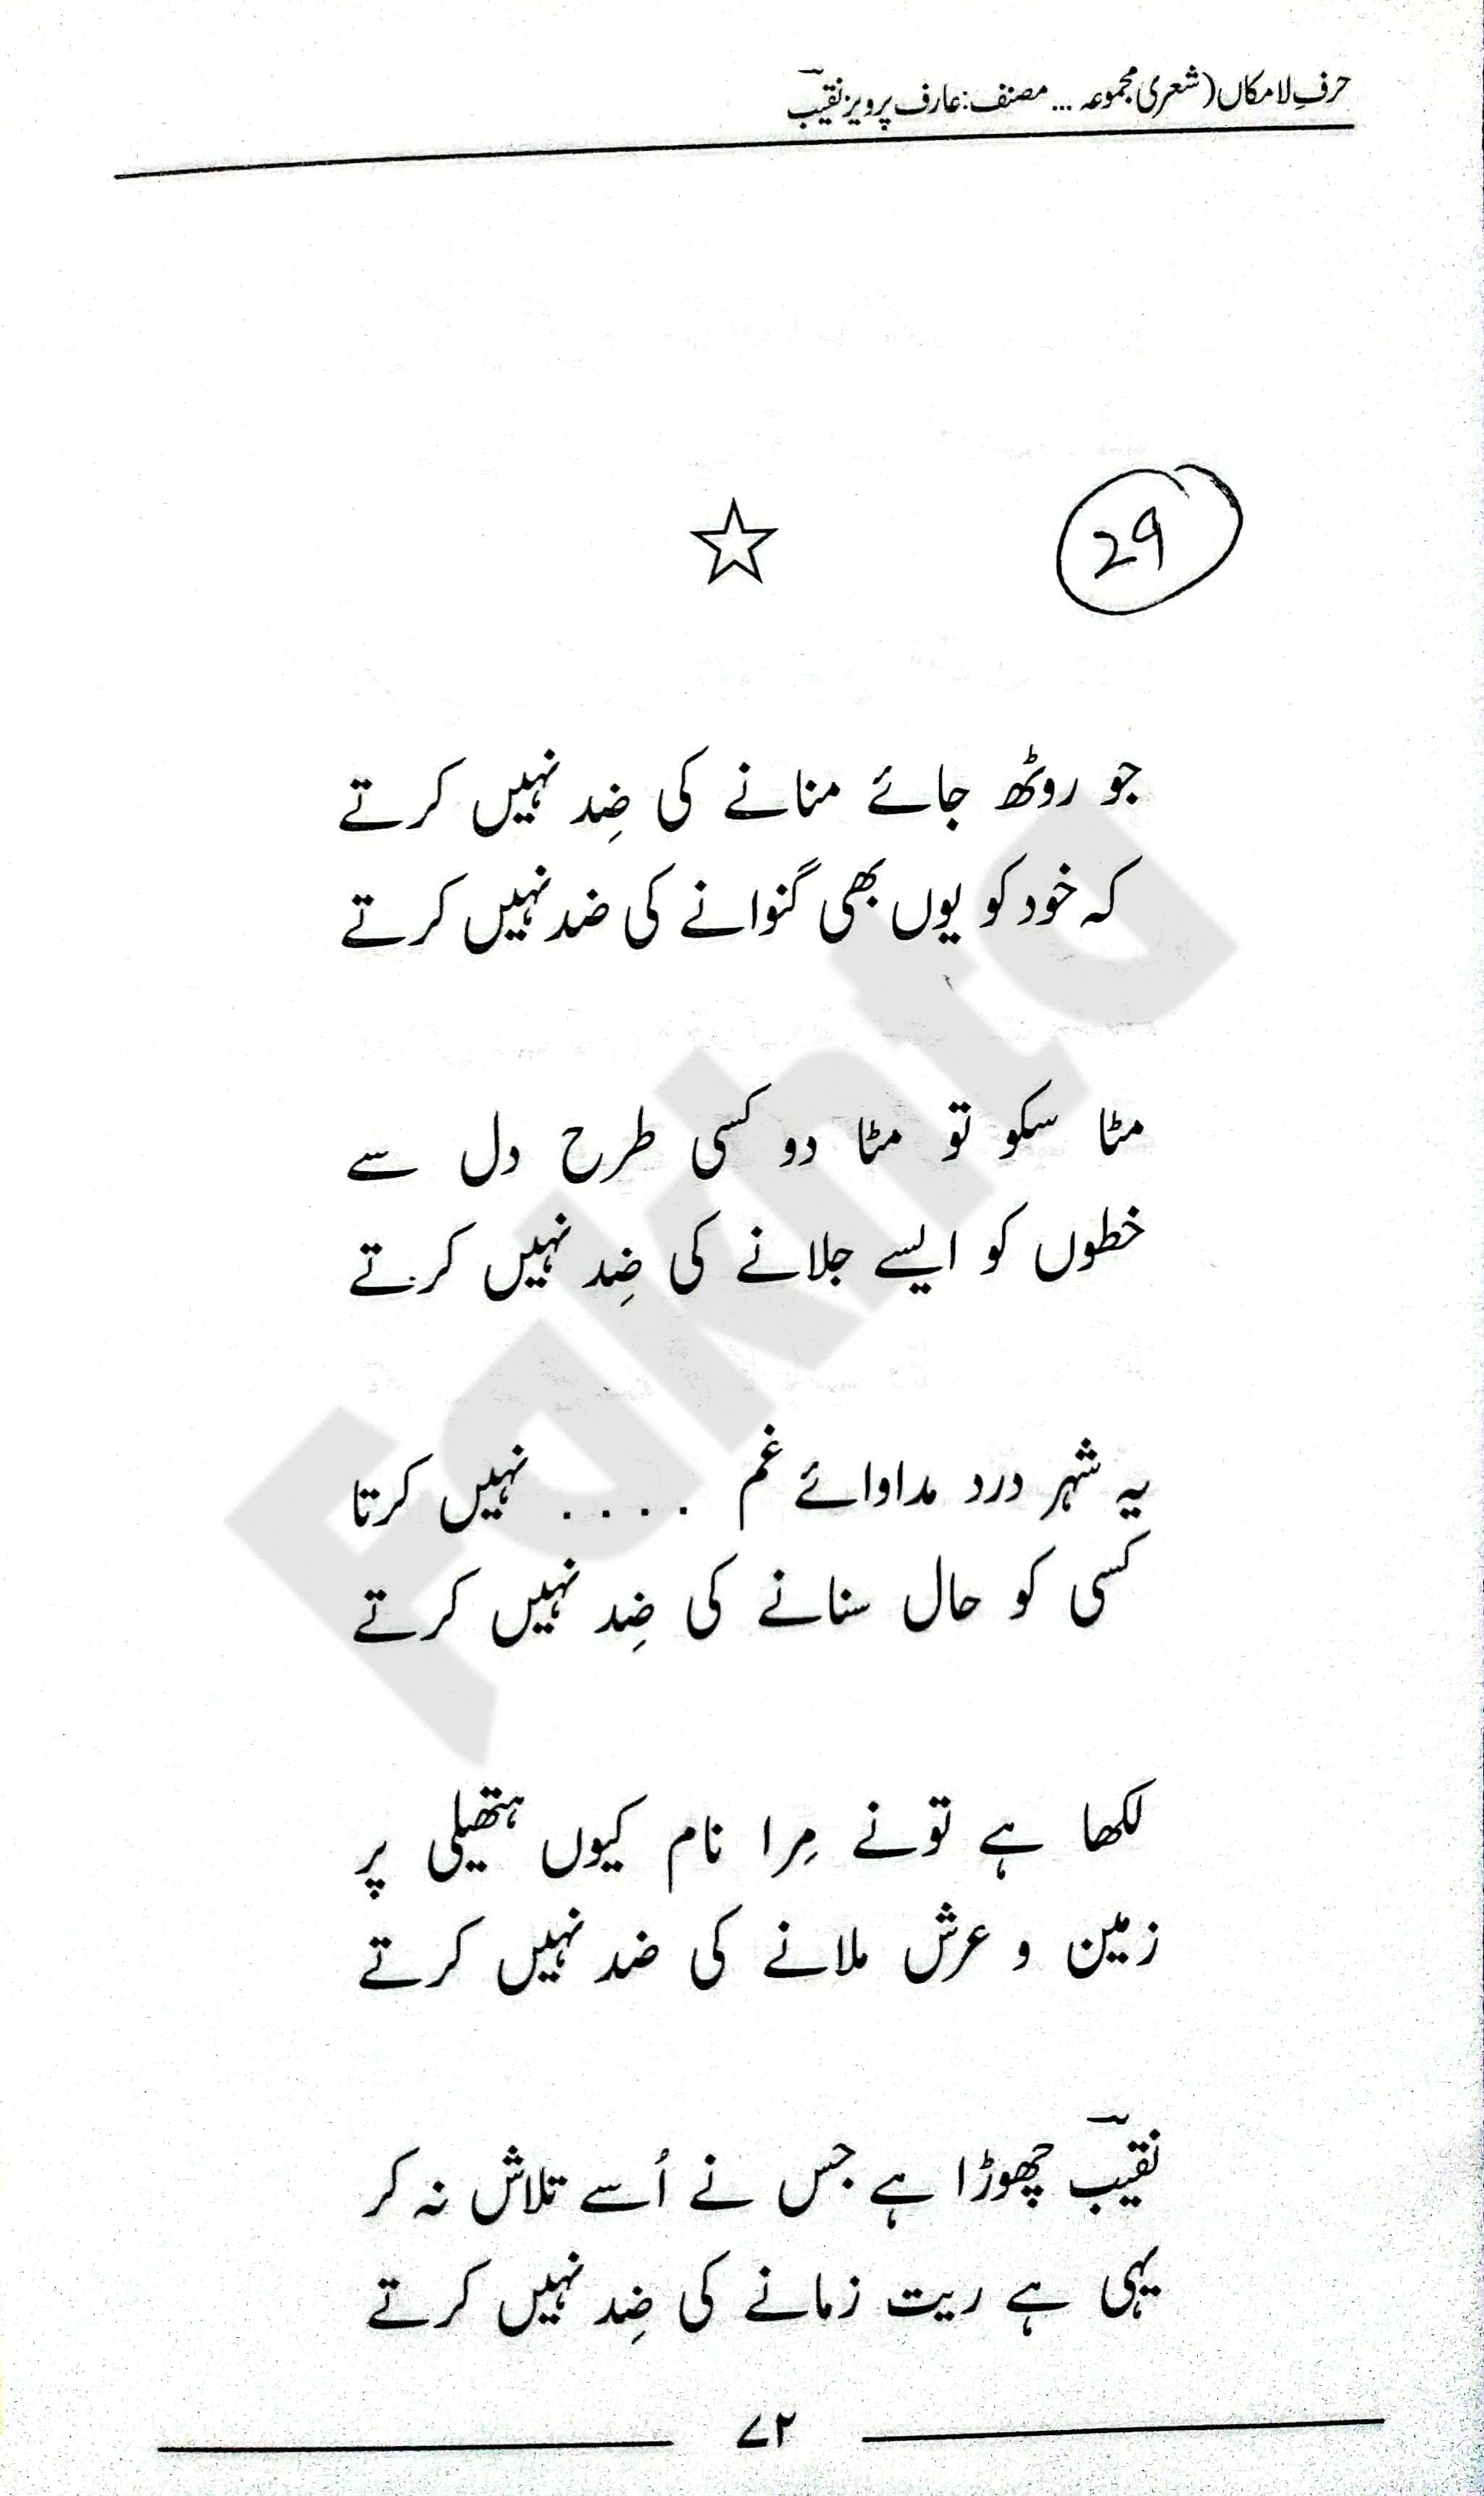 حرفِ لامکاں (شعری مجموعہ ... مصنف: عارف پرویز نقیبؔ
29
جو روٹھ جائے منانے کی ضِد نہیں کرتے
کہ خود کو یوں بھی گنوانے کی ضد نہیں کرتے
مٹا سکو تو مٹا دو کسی طرح دل سے
خطوں کو ایسے جلانے کی ضِد نہیں کرتے
یہ شہر درد مداوائے غم .... نہیں کرتا
کسی کو حال سنانے کی ضِد نہیں کرتے
لکھا ہے تونے مِرا نام کیوں ہتھیلی پر
زمین و عرش ملانے کی ضد نہیں کرتے
نقیبؔ چھوڑا ہے جس نے اُسے تلاش نہ کر
یہی ہے ریت زمانے کی ضِد نہیں کرتے
۷۲
Fakhta